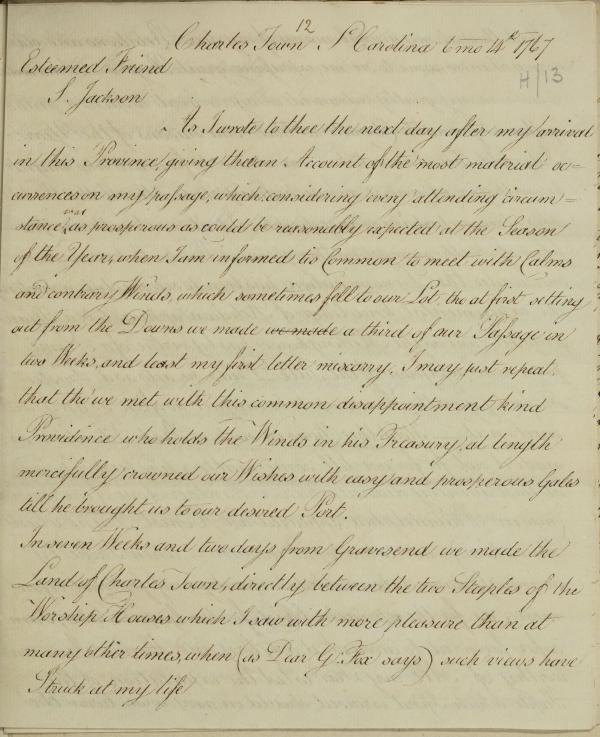 12
Charles Town So Carolina 6 mo 14th 1767
H/13
Esteemed Friend
S. Jackson
As I wrote to thee the next day after my arrival
in this Province giving thee an Account of the most material oc=
currences on my passage, which considering every attending circum=
stance, was as prosperous as could be reasonably expected at the Season
of the Year, when I am informed tis Common to meet with Calms
and contrary Winds, which sometimes fell to our Lot, tho at first setting
out from the Downs we made we made a third of our Passage in
two Weeks, and least my first letter miscarry, I may just repeat,
that tho' we met with this common disappointment kind
Providence who holds the Winds in his Treasury, at length
mercifully crowned our Wishes with easy and prosperous Gales
till he brought us to our desired Port.
In seven Weeks and two days from Gravesend we made the
Land of Charles Town, directly between the two Steeples of the
Worship Houses which I saw with more pleasure than at
many other times, when (as Dear G: Fox says) such views have
Struck at my life